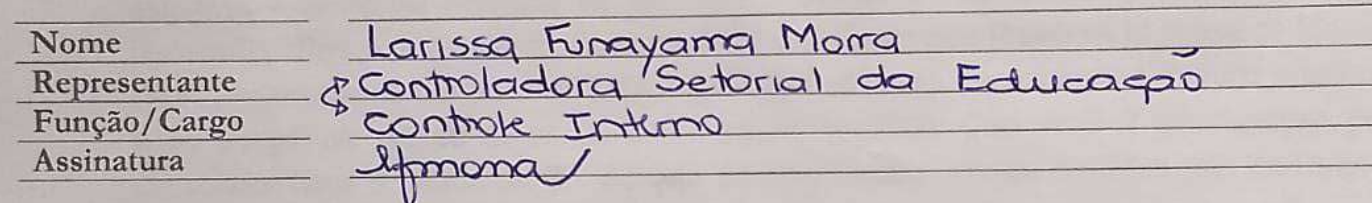 Nome Larissa Funayama Morra
Representante Controladora Setorial da Educação
Função/Cargo Controle Interno
Assinatura lfmorra